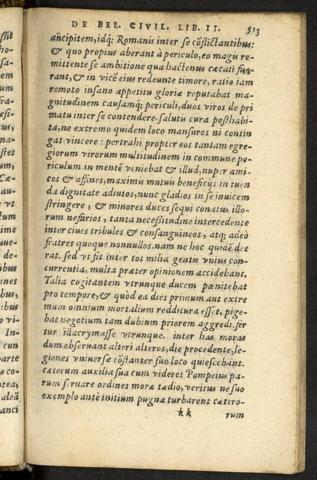 DE BEL. CIVIL. LIB. II. 513
ancipitem, idq́; Romanis inter se cõflictantibus:
& quo propius aberant à periculo, eo magis re-
mittente se ambitione qua hactenus cæcati fue
rant, & in vicẽ eius redeunte timore, ratio iam
remoto insano appetitu gloriæ reputabat ma-
gnitudinem causamq́; periculi, duos viros de pri
matu inter se contendere. salute cura posthabi-
ta, ne extremo quidem loco mansuros ni contin
gat vincere: pertrahi propter eos tantam egre-
giorum virorum multitudinem in commune pe-
riculum. in mentẽ veniebat & illud, nuper ami-
cos & affines, maximis mutuis beneficijs in tuen
da dignitate adiutos, nunc gladios in se inuicem
stringere, & minores duces sequi conatus illo-
rum nefarios, tanta necessitudine intercedente
inter ciues tribules & consanguineos, atq; adeò
fratres quoque nonnullos. nam ne hoc quidẽ dee
rat. sed vt fit inter tot milia gentis vnius con-
currentia, multa præter opinionem accidebant.
Talia cogitantem vtrunque ducem pœnitebat
pro tempore, & quòd ea dies primum aut extre
mum omnium mortalium redditura esset, pige-
bat negotium tam dubium priorem aggredi. fer
tur illacrymasse vtrunque. inter has moras
dum obseruant alteri alteros, die procedente, le-
giones vniuersæ cõstanter suo loco quiescebant.
cæterum auxilia sua cum videret Pompeius pa-
rum seruare ordines moræ tædio, veritus ne suo
exemplo ante initium pugnæ turbarent cætero-
kk rum